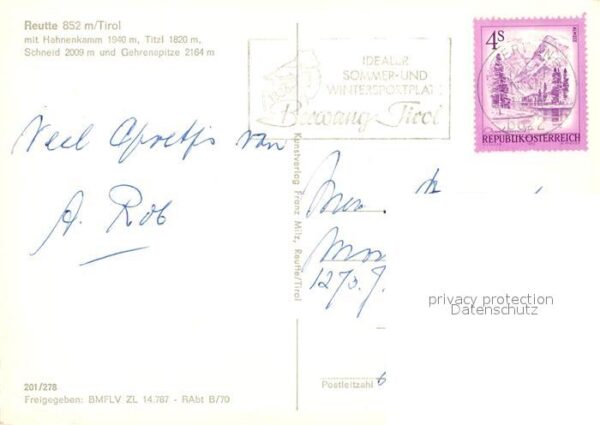 Reutte 852 m/Tirol
mit Hahnenkamm 1940 m, Titzl 1820 m,
Schneid 2009 m und Gehrenspitze 2164 m
IDEALER
SOMMER-UND
WINTERSPORTPLATZ
Berwang Tirol
4S
REPUBLIK ÖSTERREICH
Veel van
A. Rob
Kunstverlag Franz Milz, Reutte/Tirol
privacy protection
Datenschutz
Postleitzahl
201/278
Freigegeben: BMFLV ZL 14.787 - RAbt B/70